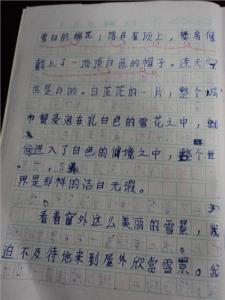 雪白的棉花；落在屋顶上，整房像
戴上了一顶顶白色的帽子。连天空
也是白的。白茫茫的一片，整个城
市都浸泡在乳白色的雪花之中，
像进入了白色的仙境之中，整个世
界是那样的洁白无瑕。
看着窗外这么美丽的雪景，我
迫不及待地来到屋外欣赏雪景。我